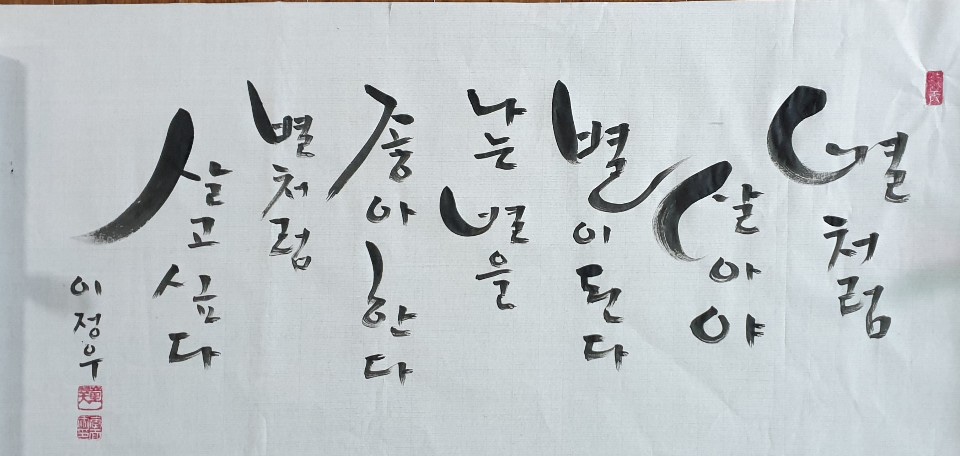 별처럼
살아야
별이된다
나는 별을
좋아한다
별처럼
살고싶다
이정우